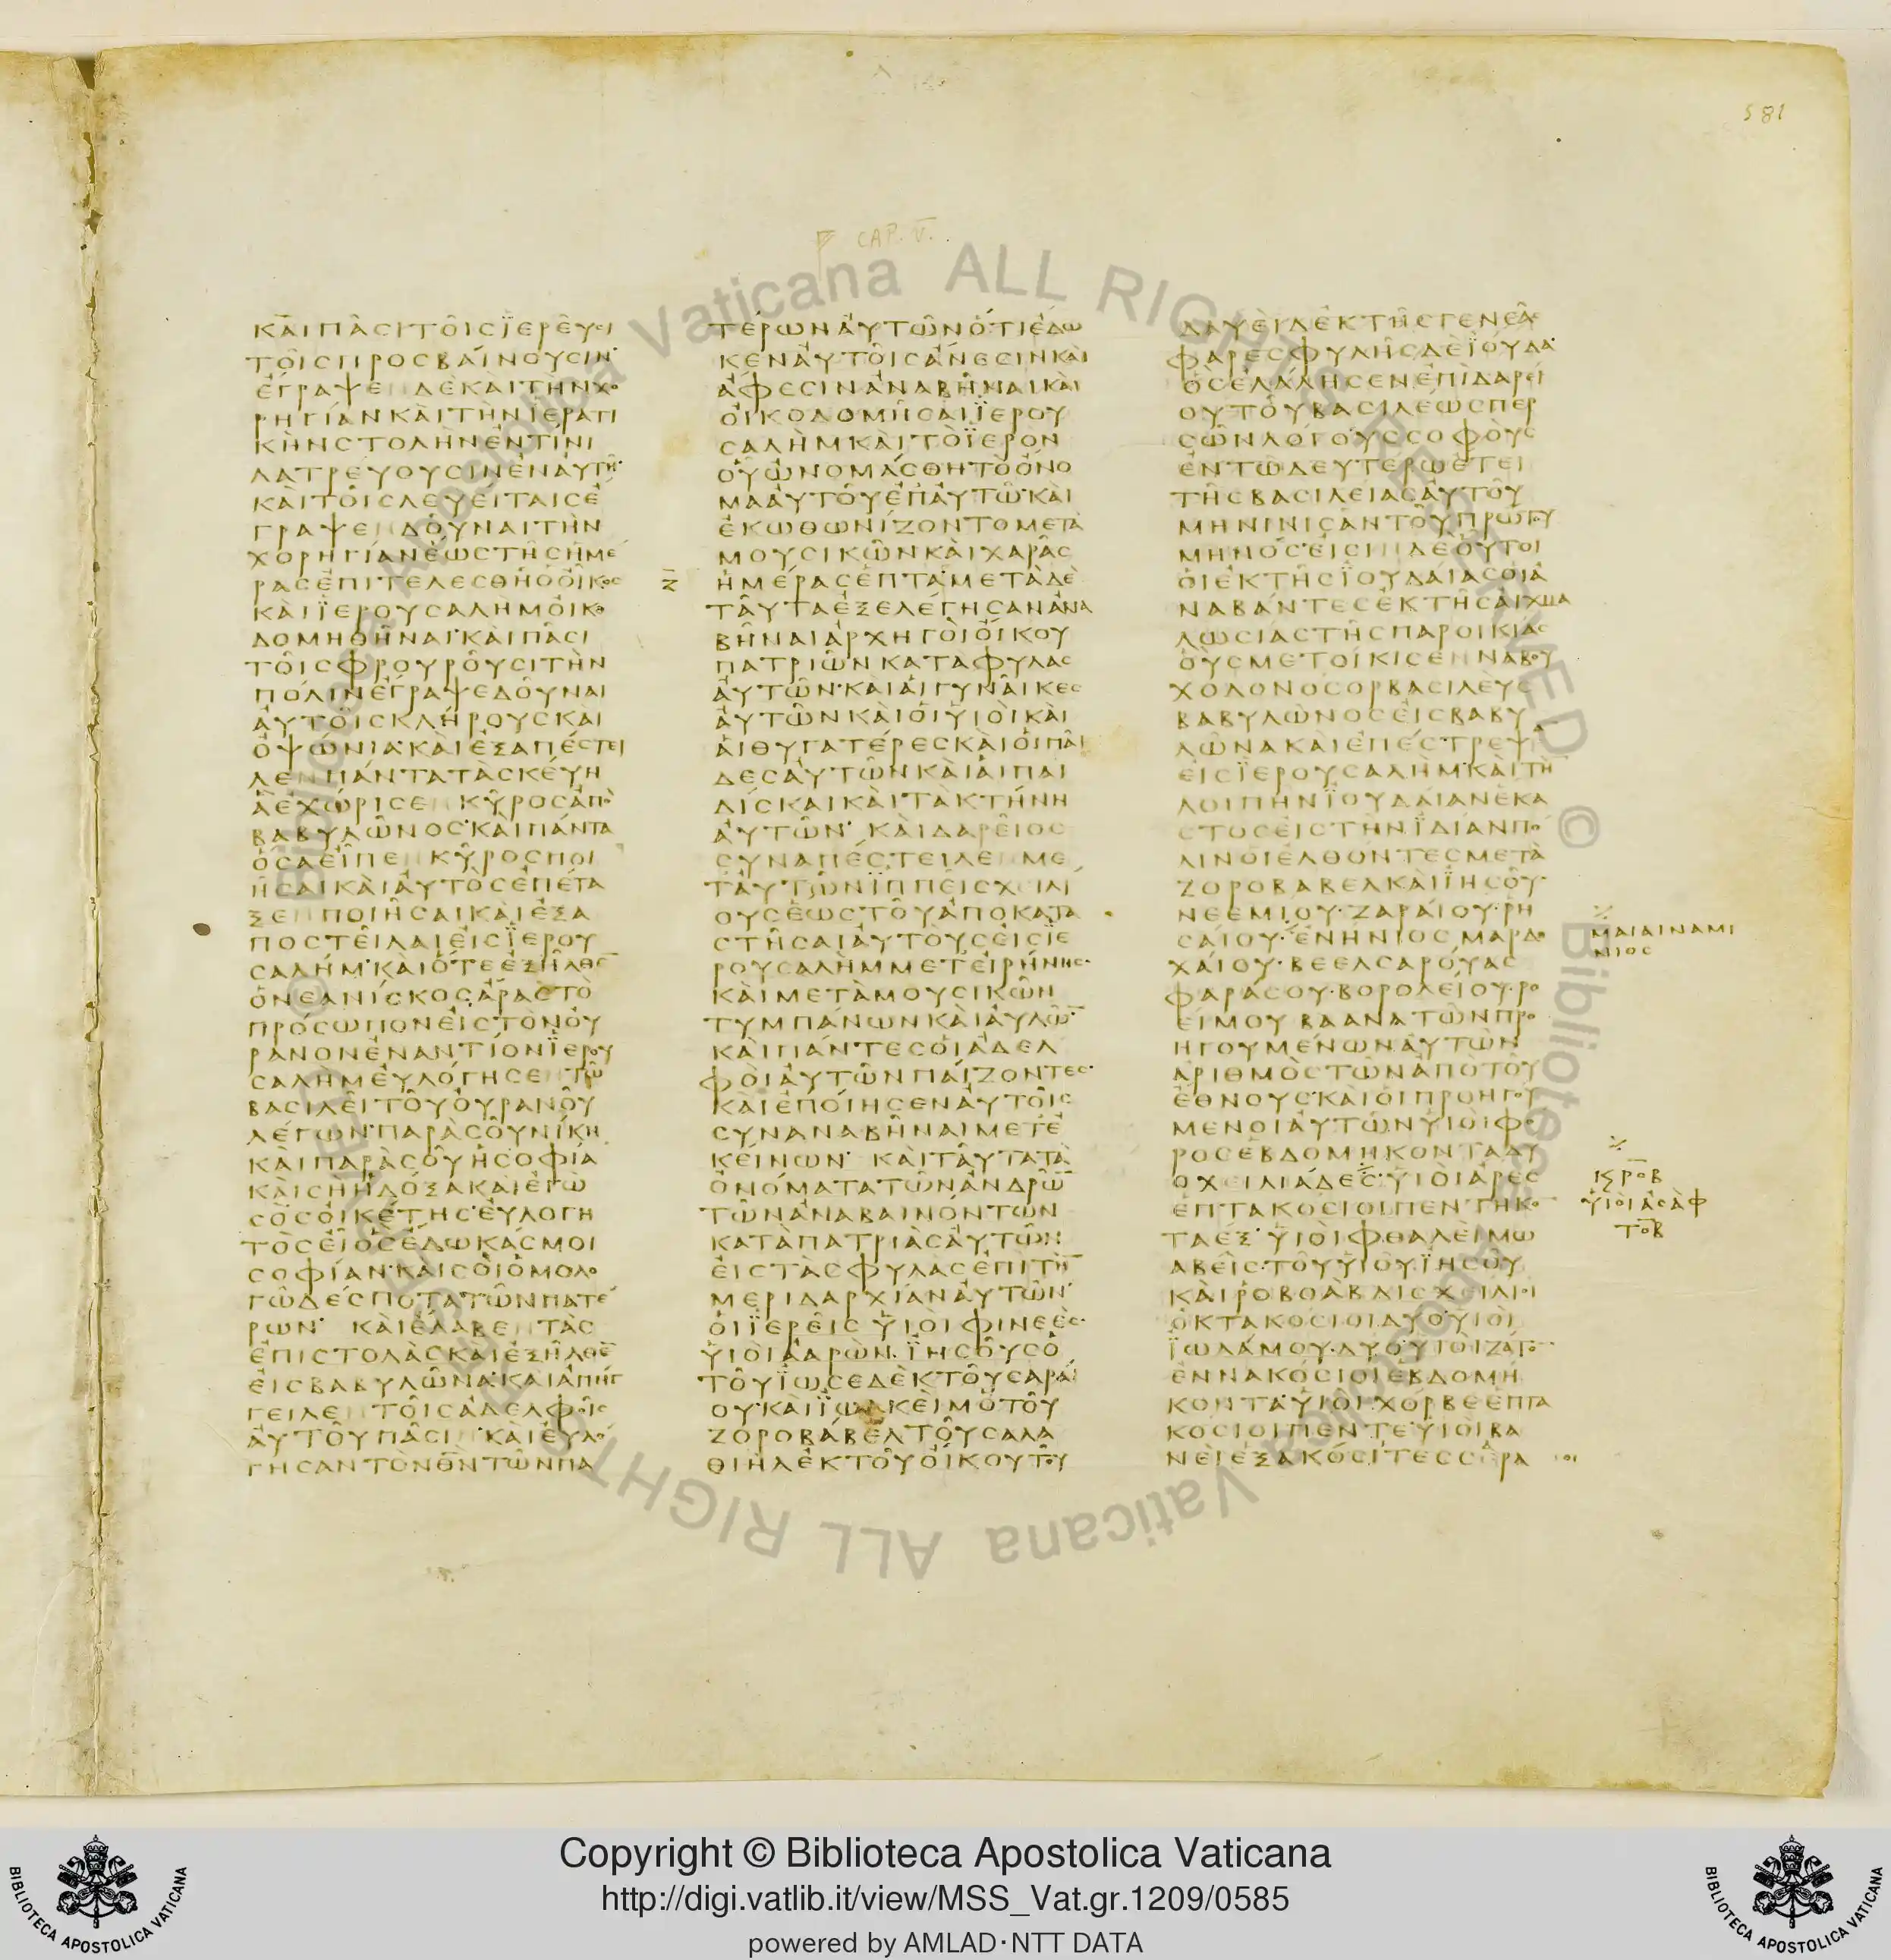 581
CAP. V.
ΚΑΙΠΑΣΙΤΟΙΣΪΕΡΕΥΣΙ
ΤΟΙΣΠΡΟΣΒΑΙΝΟΥΣΙΝ
ΕΓΡΑΨΕΝΔΕΚΑΙΤΗΝΧΟ
ΡΗΓΙΑΝΚΑΙΤΗΝΪΕΡΑΤΙ
ΚΗΝΣΤΟΛΗΝΕΝΤΙΝΙ
ΛΑΤΡΕΥΟΥΣΙΝΕΝΑΥΤΗ
ΚΑΙΤΟΙΣΛΕΥΕΙΤΑΙΣΕ
ΓΡΑΨΕΝΔΟΥΝΑΙΤΗΝ
ΧΟΡΗΓΙΑΝΕΩΣΤΗΣΗΜΕ
ΡΑΣΕΠΙΤΕΛΕΣΘΗΟΟΙΚΟΣ
ΚΑΙΪΕΡΟΥΣΑΛΗΜΟΙΚΟ
ΔΟΜΗΘΗΝΑΙΚΑΙΠΑΣΙ
ΤΟΙΣΦΡΟΥΡΟΥΣΙΤΗΝ
ΠΟΛΙΝΕΓΡΑΨΕΔΟΥΝΑΙ
ΑΥΤΟΙΣΚΛΗΡΟΥΣΚΑΙ
ΟΨΩΝΙΑΚΑΙΕΞΑΠΕΣΤΕΙ
ΛΕΝΠΑΝΤΑΤΑΣΚΕΥΗ
ΑΕΧΩΡΙΣΕΝΚΥΡΟΣΑΠΟ
ΒΑΒΥΛΩΝΟΣΚΑΙΠΑΝΤΑ
ΟΣΑΕΙΠΕΝΚΥΡΟΣΠΟΙ
ΗΣΑΙΚΑΙΑΥΤΟΣΕΠΕΤΑ
ΞΕΝΠΟΙΗΣΑΙΚΑΙΕΞΑ
ΠΟΣΤΕΙΛΑΙΕΙΣΪΕΡΟΥ
ΣΑΛΗΜΚΑΙΟΤΕΕΞΗΛΘΕ
ΟΝΕΑΝΙΣΚΟΣΑΡΑΣΤΟ
ΠΡΟΣΩΠΟΝΕΙΣΤΟΝΟΥ
ΡΑΝΟΝΕΝΑΝΤΙΟΝΪΕΡΟΥ
ΣΑΛΗΜΕΥΛΟΓΗΣΕΝΤΩ
ΒΑΣΙΛΕΙΤΟΥΟΥΡΑΝΟΥ
ΛΕΓΩΝΠΑΡΑΣΟΥΝΙΚΗ
ΚΑΙΠΑΡΑΣΟΥΗΣΟΦΙΑ
ΚΑΙΣΗΗΔΟΞΑΚΑΙΕΓΩ
ΣΟΣΟΙΚΕΤΗΣΕΥΛΟΓΗ
ΤΟΣΕΙΟΣΕΔΩΚΑΣΜΟΙ
ΣΟΦΙΑΝΚΑΙΣΟΙΟΜΟΛΟ
ΓΩΔΕΣΠΟΤΑΤΩΝΠΑΤΕ
ΡΩΝΚΑΙΕΛΑΒΕΝΤΑΣ
ΕΠΙΣΤΟΛΑΣΚΑΙΕΞΗΛΘΕ
ΕΙΣΒΑΒΥΛΩΝΑΚΑΙΑΠΗΓ
ΓΕΙΛΕΝΤΟΙΣΑΔΕΛΦΟΙΣ
ΑΥΤΟΥΠΑΣΙΝΚΑΙΕΥΛΟ
ΓΗΣΑΝΤΟΝΘΝΤΩΝΠΑ
ΤΕΡΩΝΑΥΤΩΝΟΤΙΕΔΩ
ΚΕΝΑΥΤΟΙΣΑΝΕΣΙΝΚΑΙ
ΑΦΕΣΙΝΑΝΑΒΗΝΑΙΚΑΙ
ΟΙΚΟΔΟΜΗΣΑΙΪΕΡΟΥ
ΣΑΛΗΜΚΑΙΤΟΪΕΡΟΝ
ΟΥΩΝΟΜΑΣΘΗΤΟΟΝΟ
ΜΑΑΥΤΟΥΕΠΑΥΤΩΚΑΙ
ΕΚΩΘΩΝΙΖΟΝΤΟΜΕΤΑ
ΜΟΥΣΙΚΩΝΚΑΙΧΑΡΑΣ
Ζ ΗΜΕΡΑΣΕΠΤΑΜΕΤΑΔΕ
ΤΑΥΤΑΕΞΕΛΕΓΗΣΑΝΑΝΑ
ΒΗΝΑΙΑΡΧΗΓΟΙΟΙΚΟΥ
ΠΑΤΡΙΩΝΚΑΤΑΦΥΛΑΣ
ΑΥΤΩΝΚΑΙΑΙΓΥΝΑΙΚΕΣ
ΑΥΤΩΝΚΑΙΟΙΥΙΟΙΚΑΙ
ΑΙΘΥΓΑΤΕΡΕΣΚΑΙΟΙΠΑΙ
ΔΕΣΑΥΤΩΝΚΑΙΑΙΠΑΙ
ΔΙΣΚΑΙΚΑΙΤΑΚΤΗΝΗ
ΑΥΤΩΝΚΑΙΔΑΡΕΙΟΣ
ΣΥΝΑΠΕΣΤΕΙΛΕΝΜΕ
ΤΑΥΤΩΝΪΠΠΕΙΣΧΕΙΛΙ
ΟΥΣΕΩΣΤΟΥΑΠΟΚΑΤΑ
ΣΤΗΣΑΙΑΥΤΟΥΣΕΙΣΪΕ
ΡΟΥΣΑΛΗΜΜΕΤΕΙΡΗΝΗΣ
ΚΑΙΜΕΤΑΜΟΥΣΙΚΩΝ
ΤΥΜΠΑΝΩΝΚΑΙΑΥΛΩ̅
ΚΑΙΠΑΝΤΕΣΟΙΑΔΕΛ
ΦΟΙΑΥΤΩΝΠΑΙΖΟΝΤΕΣ
ΚΑΙΕΠΟΙΗΣΕΝΑΥΤΟΙΣ
ΣΥΝΑΝΑΒΗΝΑΙΜΕΤΕ
ΚΕΙΝΩΝΚΑΙΤΑΥΤΑΤΑ
ΟΝΟΜΑΤΑΤΩΝΑΝΔΡΩ̅
ΤΩΝΑΝΑΒΑΙΝΟΝΤΩΝ
ΚΑΤΑΠΑΤΡΙΑΣΑΥΤΩΝ
ΕΙΣΤΑΣΦΥΛΑΣΕΠΙΤΗ̅
ΜΕΡΙΔΑΡΧΙΑΝΑΥΤΩΝ
ΟΙΪΕΡΕΙΣΫΙΟΙΦΙΝΕΕΣ
ΫΙΟΙΑΑΡΩΝΪΗΣΟΥΣΟ
ΤΟΥΪΩΣΕΔΕΚΤΟΥΣΑΡΑΙ
ΟΥΚΑΙΪΩΑΚΕΙΜΟΤΟΥ
ΖΟΡΟΒΑΒΕΛΤΟΥΣΑΛΑ
ΘΙΗΛΕΚΤΟΥΟΙΚΟΥΤΟΥ
ΔΑΥΕΙΔΕΚΤΗΣΓΕΝΕΑΣ
ΦΑΡΕΣΦΥΛΗΣΔΕΪΟΥΔΑ
ΟΣΕΛΑΛΗΣΕΝΕΠΙΔΑΡΕΙ
ΟΥΤΟΥΒΑΣΙΛΕΩΣΠΕΡ
ΣΩΝΛΟΓΟΥΣΣΟΦΟΥΣ
ΕΝΤΩΔΕΥΤΕΡΩΕΤΕΙ
ΤΗΣΒΑΣΙΛΕΙΑΣΑΥΤΟΥ
ΜΗΝΙΝΙΣΑΝΤΟΥΠΡΩΤΟΥ
ΜΗΝΟΣΕΙΣΙΝΔΕΟΥΤΟΙ
ΟΙΕΚΤΗΣΪΟΥΔΑΙΑΣΟΙΑ
ΝΑΒΑΝΤΕΣΕΚΤΗΣΑΙΧΜΑ
ΛΩΣΙΑΣΤΗΣΠΑΡΟΙΚΙΑΣ
ΟΥΣΜΕΤΟΙΚΙΣΕΝΝΑΒΟΥ
ΧΟΔΟΝΟΣΟΡΒΑΣΙΛΕΥΣ
ΒΑΒΥΛΩΝΟΣΕΙΣΒΑΒΥ
ΛΩΝΑΚΑΙΕΠΕΣΤΡΕΨΑ
ΕΙΣΪΕΡΟΥΣΑΛΗΜΚΑΙΤΗ
ΛΟΙΠΗΝΪΟΥΔΑΙΑΝΕΚΑ
ΣΤΟΣΕΙΣΤΗΝΪΔΙΑΝΠΟ
ΛΙΝΟΙΕΛΘΟΝΤΕΣΜΕΤΑ
ΖΟΡΟΒΑΒΕΛΚΑΙΪΗΣΟΥ
ΝΕΕΜΙΟΥ·ΖΑΡΑΙΟΥ·ΡΗ
ΣΑΙΟΥ·ΕΝΗΝΙΟΣΜΑΡΔΟ
ΧΑΙΟΥ·ΒΕΕΛΣΑΡΟΥΑΣ
ΦΑΡΑΣΟΥ·ΒΟΡΟΛΕΙΟΥ·ΡΟ
ΕΙΜΟΥΒΑΑΝΑΤΩΝΠΡΟ
ΗΓΟΥΜΕΝΩΝΑΥΤΩΝ
ΑΡΙΘΜΟΣΤΩΝΑΠΟΤΟΥ
ΕΘΝΟΥΣΚΑΙΟΙΠΡΟΗΓΟΥ
ΜΕΝΟΙΑΥΤΩΝΥΙΟΙΦΟ
ΡΟΣΕΒΔΟΜΗΚΟΝΤΑΔΥ
ΟΧΕΙΛΙΑΔΕΣΫΙΟΙΑΡΕΣ
ΕΠΤΑΚΟΣΙΟΙΠΕΝΤΗΚΟ
ΤΑΕΞΫΙΟΙΦΘΑΛΕΙΜΩ
ΑΒΕΙΣΤΟΥΫΙΟΥΪΗΣΟΥ
ΚΑΙΡΟΒΟΑΒΔΙΣΧΕΙΛΙΟΙ
ΟΚΤΑΚΟΣΙΟΙΔΥΟΥΙΟΙ
ΪΩΛΑΜΟΥΔΥΟΥΙΟΙΖΑΤΟ
ΕΝΝΑΚΟΣΙΟΙΕΒΔΟΜΗ
ΚΟΝΤΑΫΙΟΙΧΟΡΒΕΕΠΤΑ
ΚΟΣΙΟΙΠΕΝΤΕΥΙΟΙΒΑ
ΝΕΙΕΞΑΚΟΣΙΤΕΣΣΑΡΑ
ΜΑΙΑΙΝΑΜΙ
ΝΙΟΣ
ΥΙΟΙΑΣΑΦ
Copyright © Biblioteca Apostolica Vaticana
http://digi.vatlib.it/view/MSS_Vat.gr.1209/0585
powered by AMLAD·NTT DATA
BIBLIOTECA APOSTOLICA VATICANA
BIBLIOTECA APOSTOLICA VATICANA